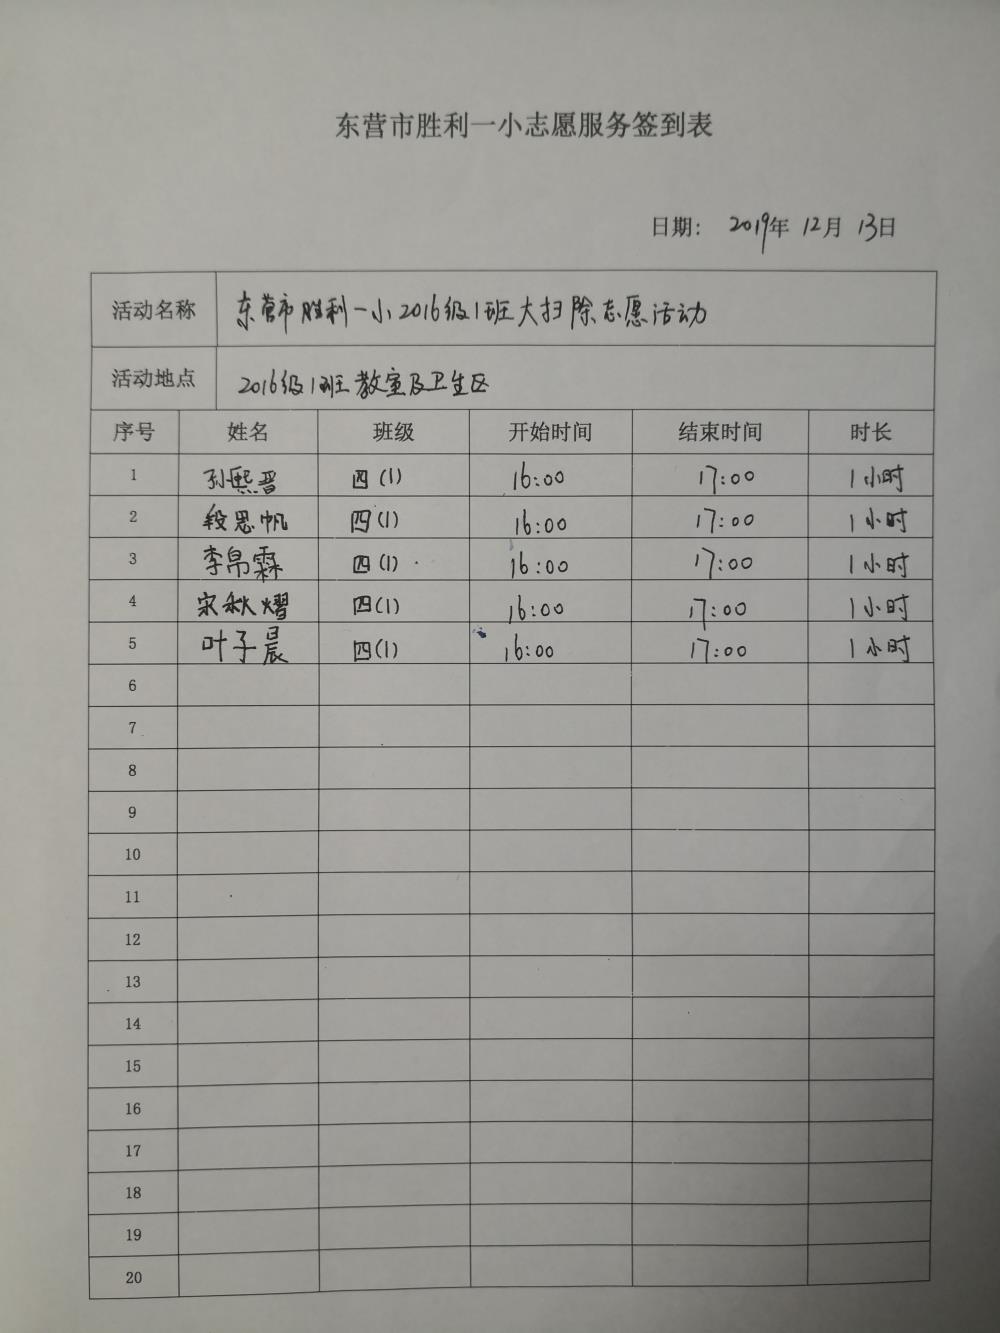 东营市胜利一小志愿服务签到表
日期： 2019年 12月 13日
活动名称 东营市胜利一小2016级1班大扫除志愿活动
活动地点 2016级1班教室及卫生区
序号 姓名 班级 开始时间 结束时间 时长
1 孙熙晋 四(1) 16:00 17:00 1小时
2 段思帆 四(1) 16:00 17:00 1小时
3 李帛霖 四(1) 16:00 17:00 1小时
4 宋秋熠 四(1) 16:00 17:00 1小时
5 叶子晨 四(1) 16:00 17:00 1小时
6
7
8
9
10
11
12
13
14
15
16
17
18
19
20